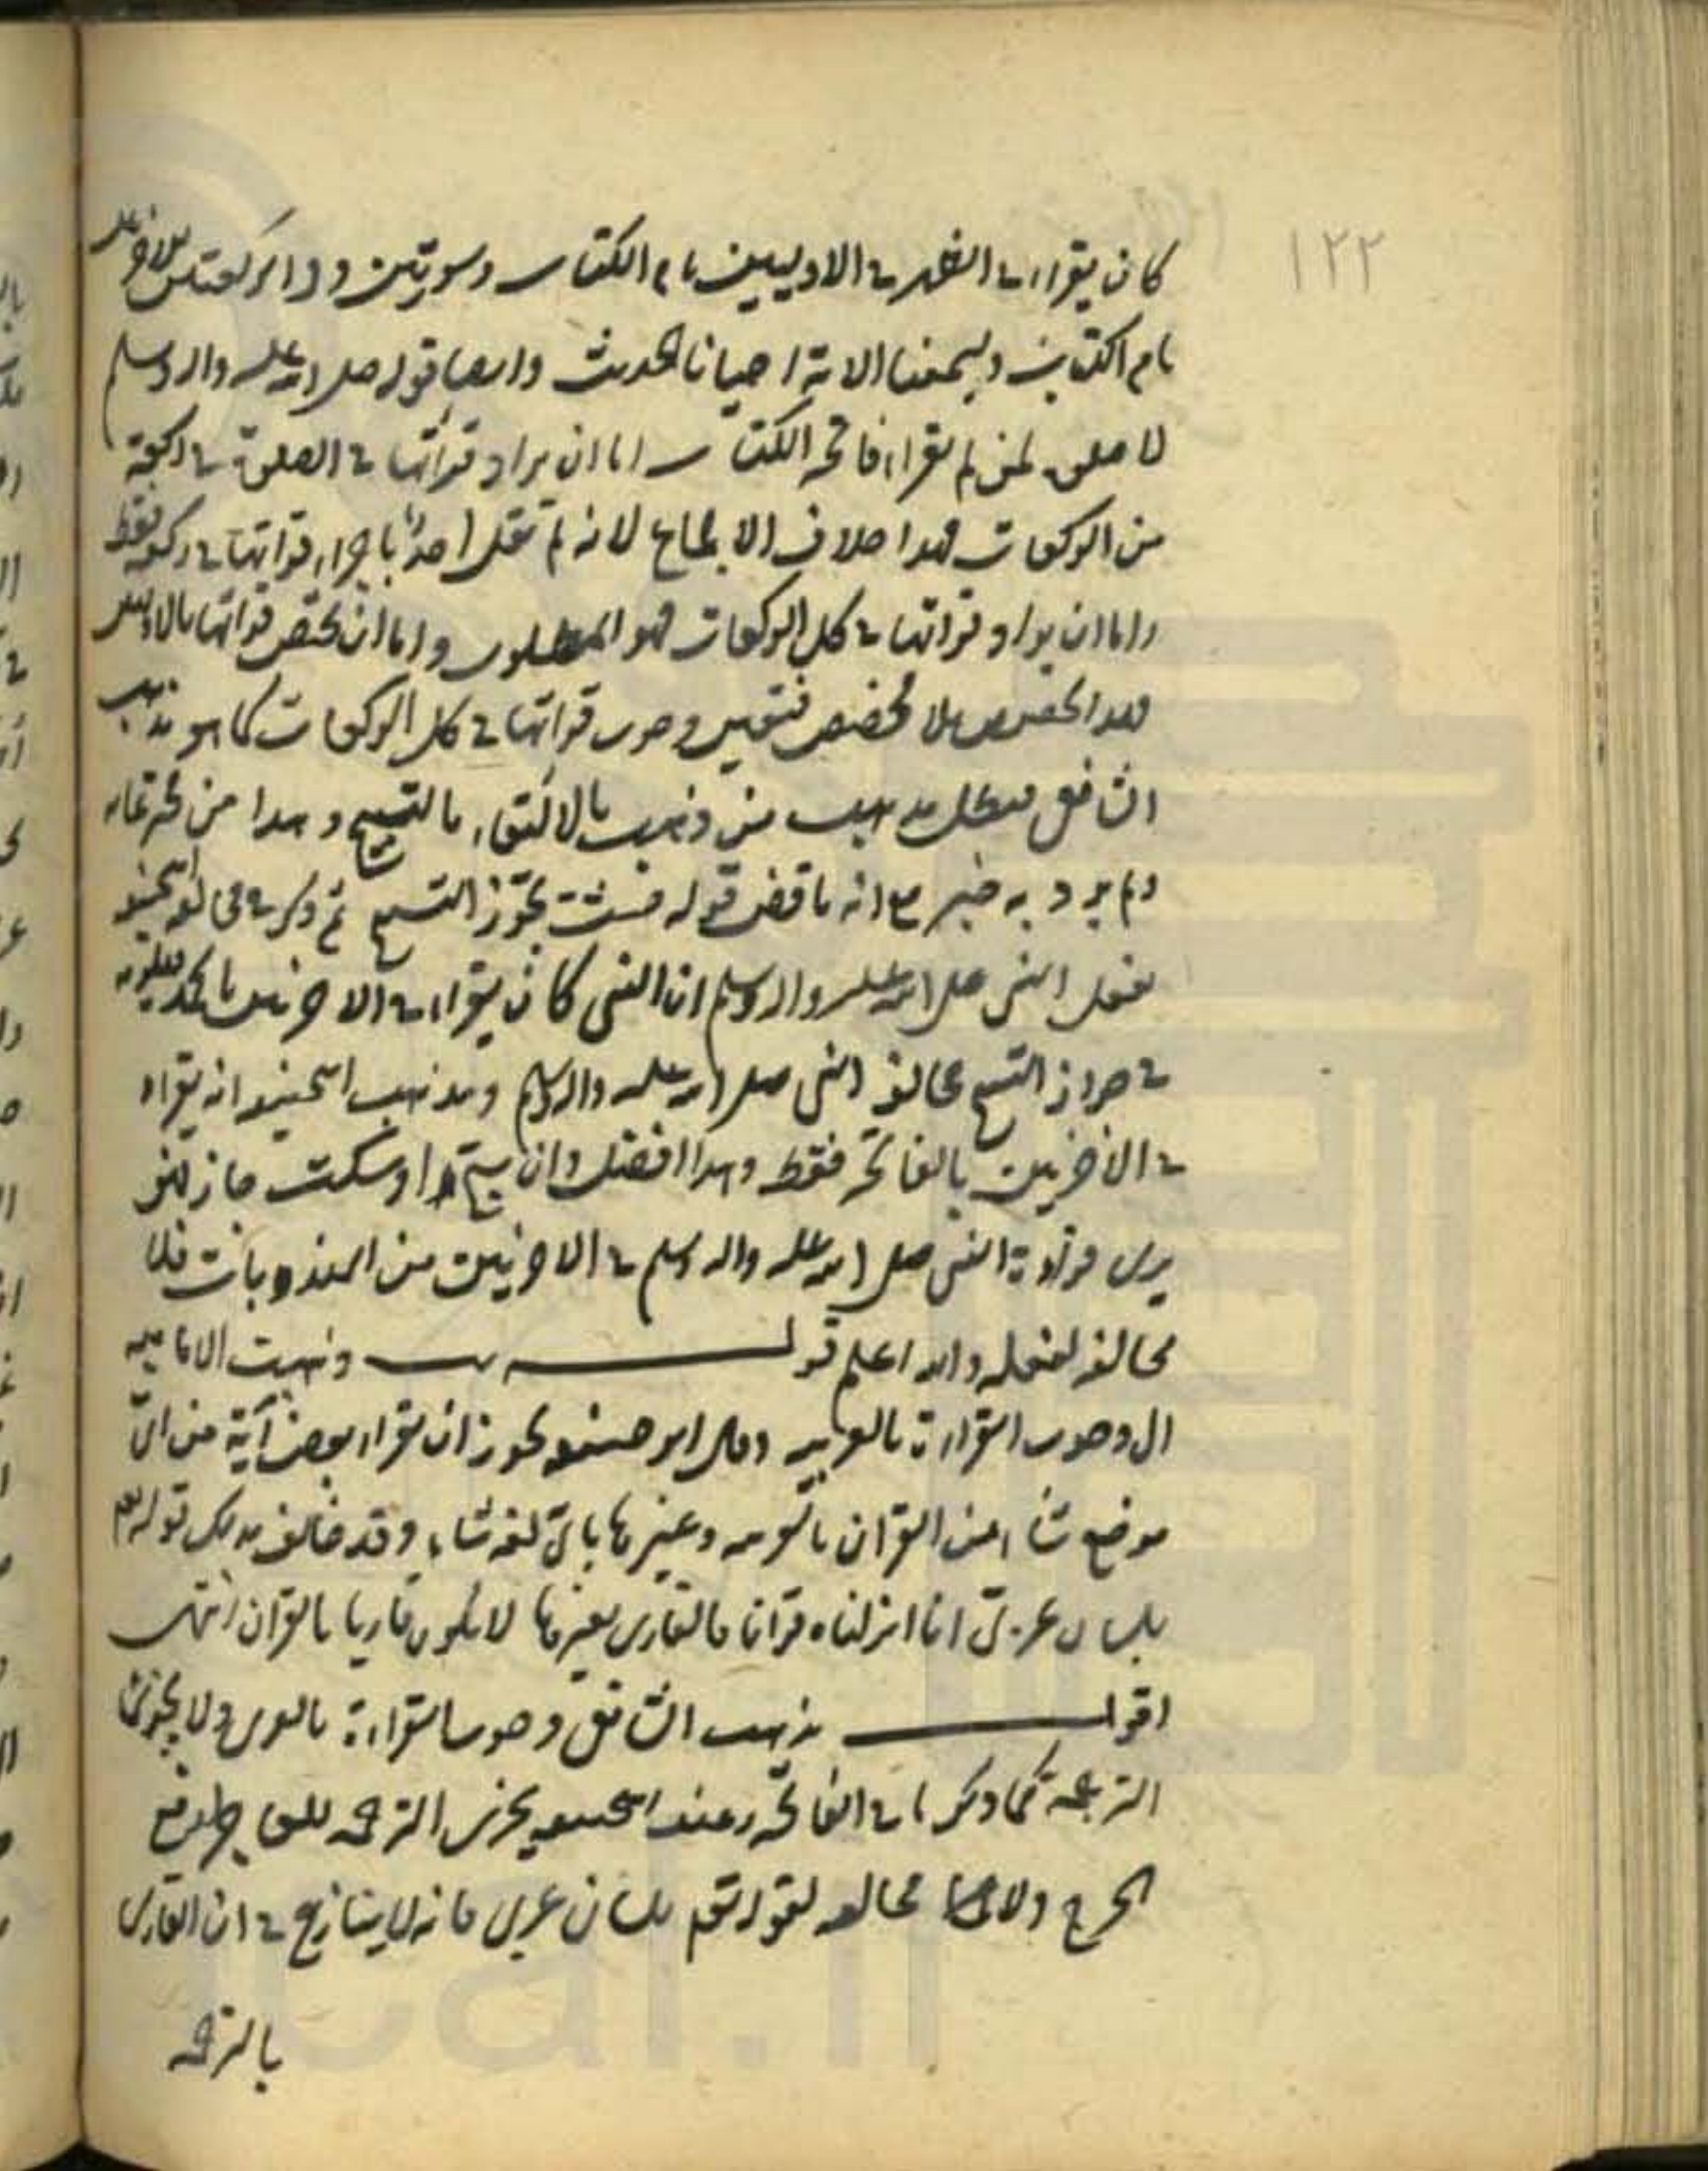 ١٢٢
كان يقراء في الظهر في الاوليين بام الكتاب وسورتين و في الركعتين الاخريين
بام الكتاب ويسمعنا الاية احيانا الحديث وايضا قوله صلى الله عليه واله وسلم
لا صلوة لمن لم يقراء فاتحة الكتاب اما ان يراد قرائتها في الصلوة في ركعة
من الركعات فهذا خلاف الاجماع لانه لم يقل احد باجزاء قرائتها في ركعة فقط
واما ان يراد قرائتها في كل الركعات فهو المطلوب واما ان يختص قرائتها بالاوليين
فهذا تخصيص بلا مخصص فتعين وجوب قرائتها في كل الركعات كما هو مذهب
الشافعي فبطل مذهب من ذهب بالاكتفاء بالتسبيح وهذا من مخترعاته
ولم يرد به خبر مع انه ناقض قوله تجوز التسبيح ثم ذكر في مخالفة ابي حنيفة
لفعل النبي صلى الله عليه واله وسلم ان النبي كان يقراء في الاخريين بالحمد
في جواز التسبيح مخالفة النبي صلى الله عليه واله وسلم ومذهب ابي حنيفة انه يقراء
في الاخريين بالفاتحة فقط وهذا افضل وان سبح او سكت جاز لانه
يرى قراءة النبي صلى الله عليه واله وسلم في الاخريين من المندوبات فلا
مخالفة لفعله والله اعلم قوله وذهبت الامامية
الى وجوب القراءة بالعربية وقال ابو حنيفة يجوز ان يقراء بعض آية من اي
موضع شاء من القران بالعربية وغيرها باي لغة شاء وقد خالف بذلك قوله تعالى
بلسان عربي انا انزلناه قرآنا فالقاري بغيرها لا يكون قاريا بالقران انتهى
اقول مذهب الشافعي وجوب القراءة بالعربي ولا يجزي
الترجمة كما ذكرنا في الفاتحة وعند ابي حنيفة يجزي الترجمة للعاجز لدفع
الحرج ولا مخالفة لقوله تعالى بلسان عربي فانه لا ينازع في ان القاري
بالترجمة